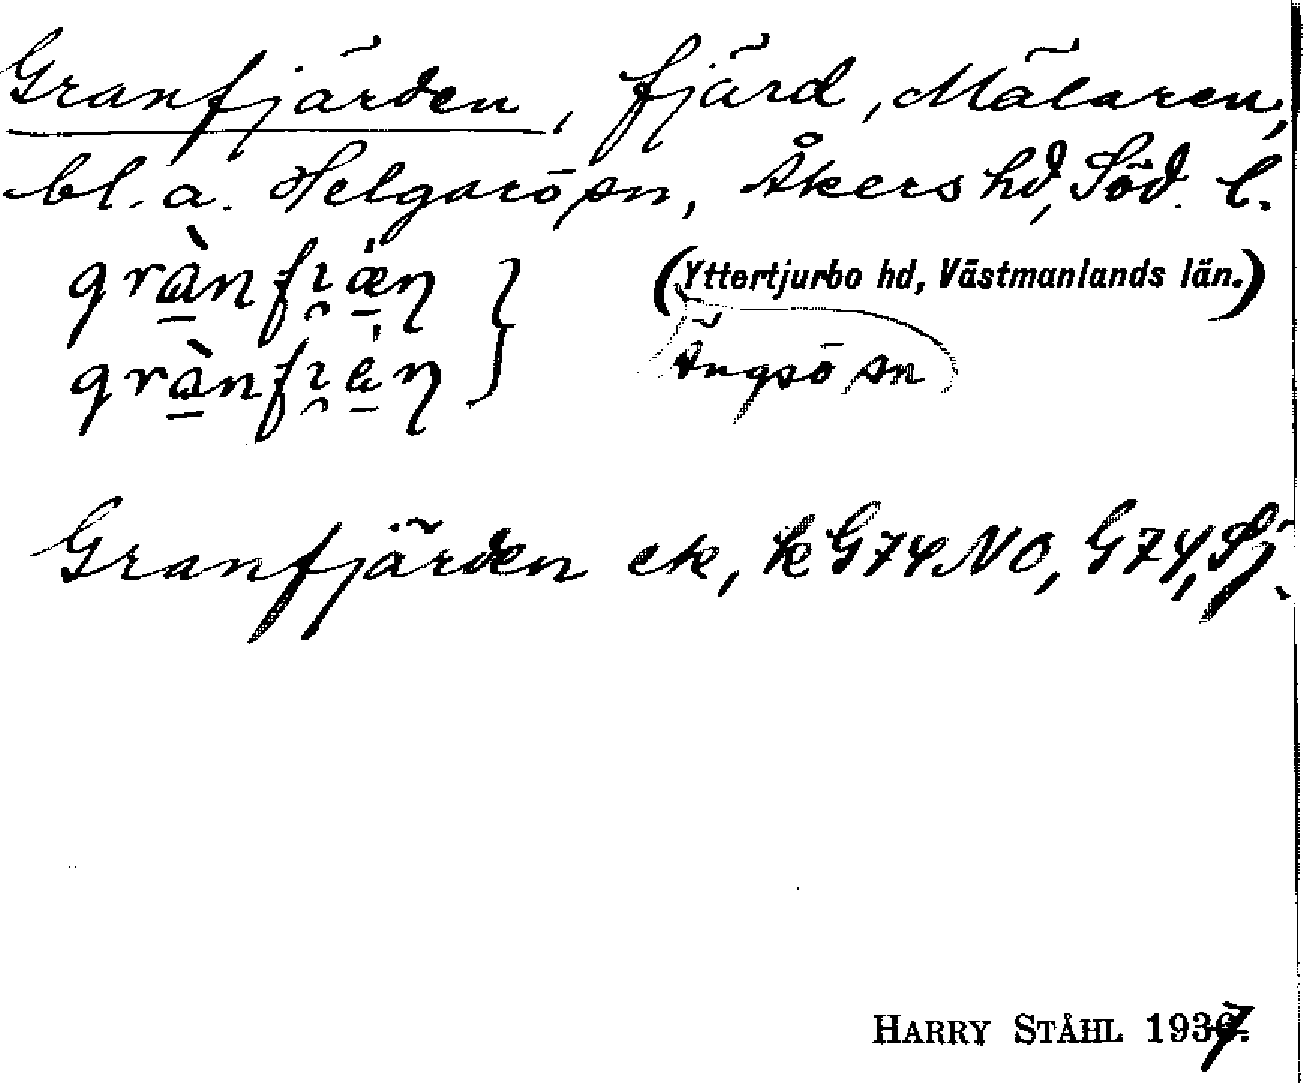 Granfjärden, fjärd, Mälaren,
bl. a. Helgarö sn, Åkers hd, Söd. l.
(Yttertjurbo hd, Västmanlands län.)
Ängsö sn
Granfjärden ek, k G74 NO, G74, Sj.
HARRY STÅHL 1937.